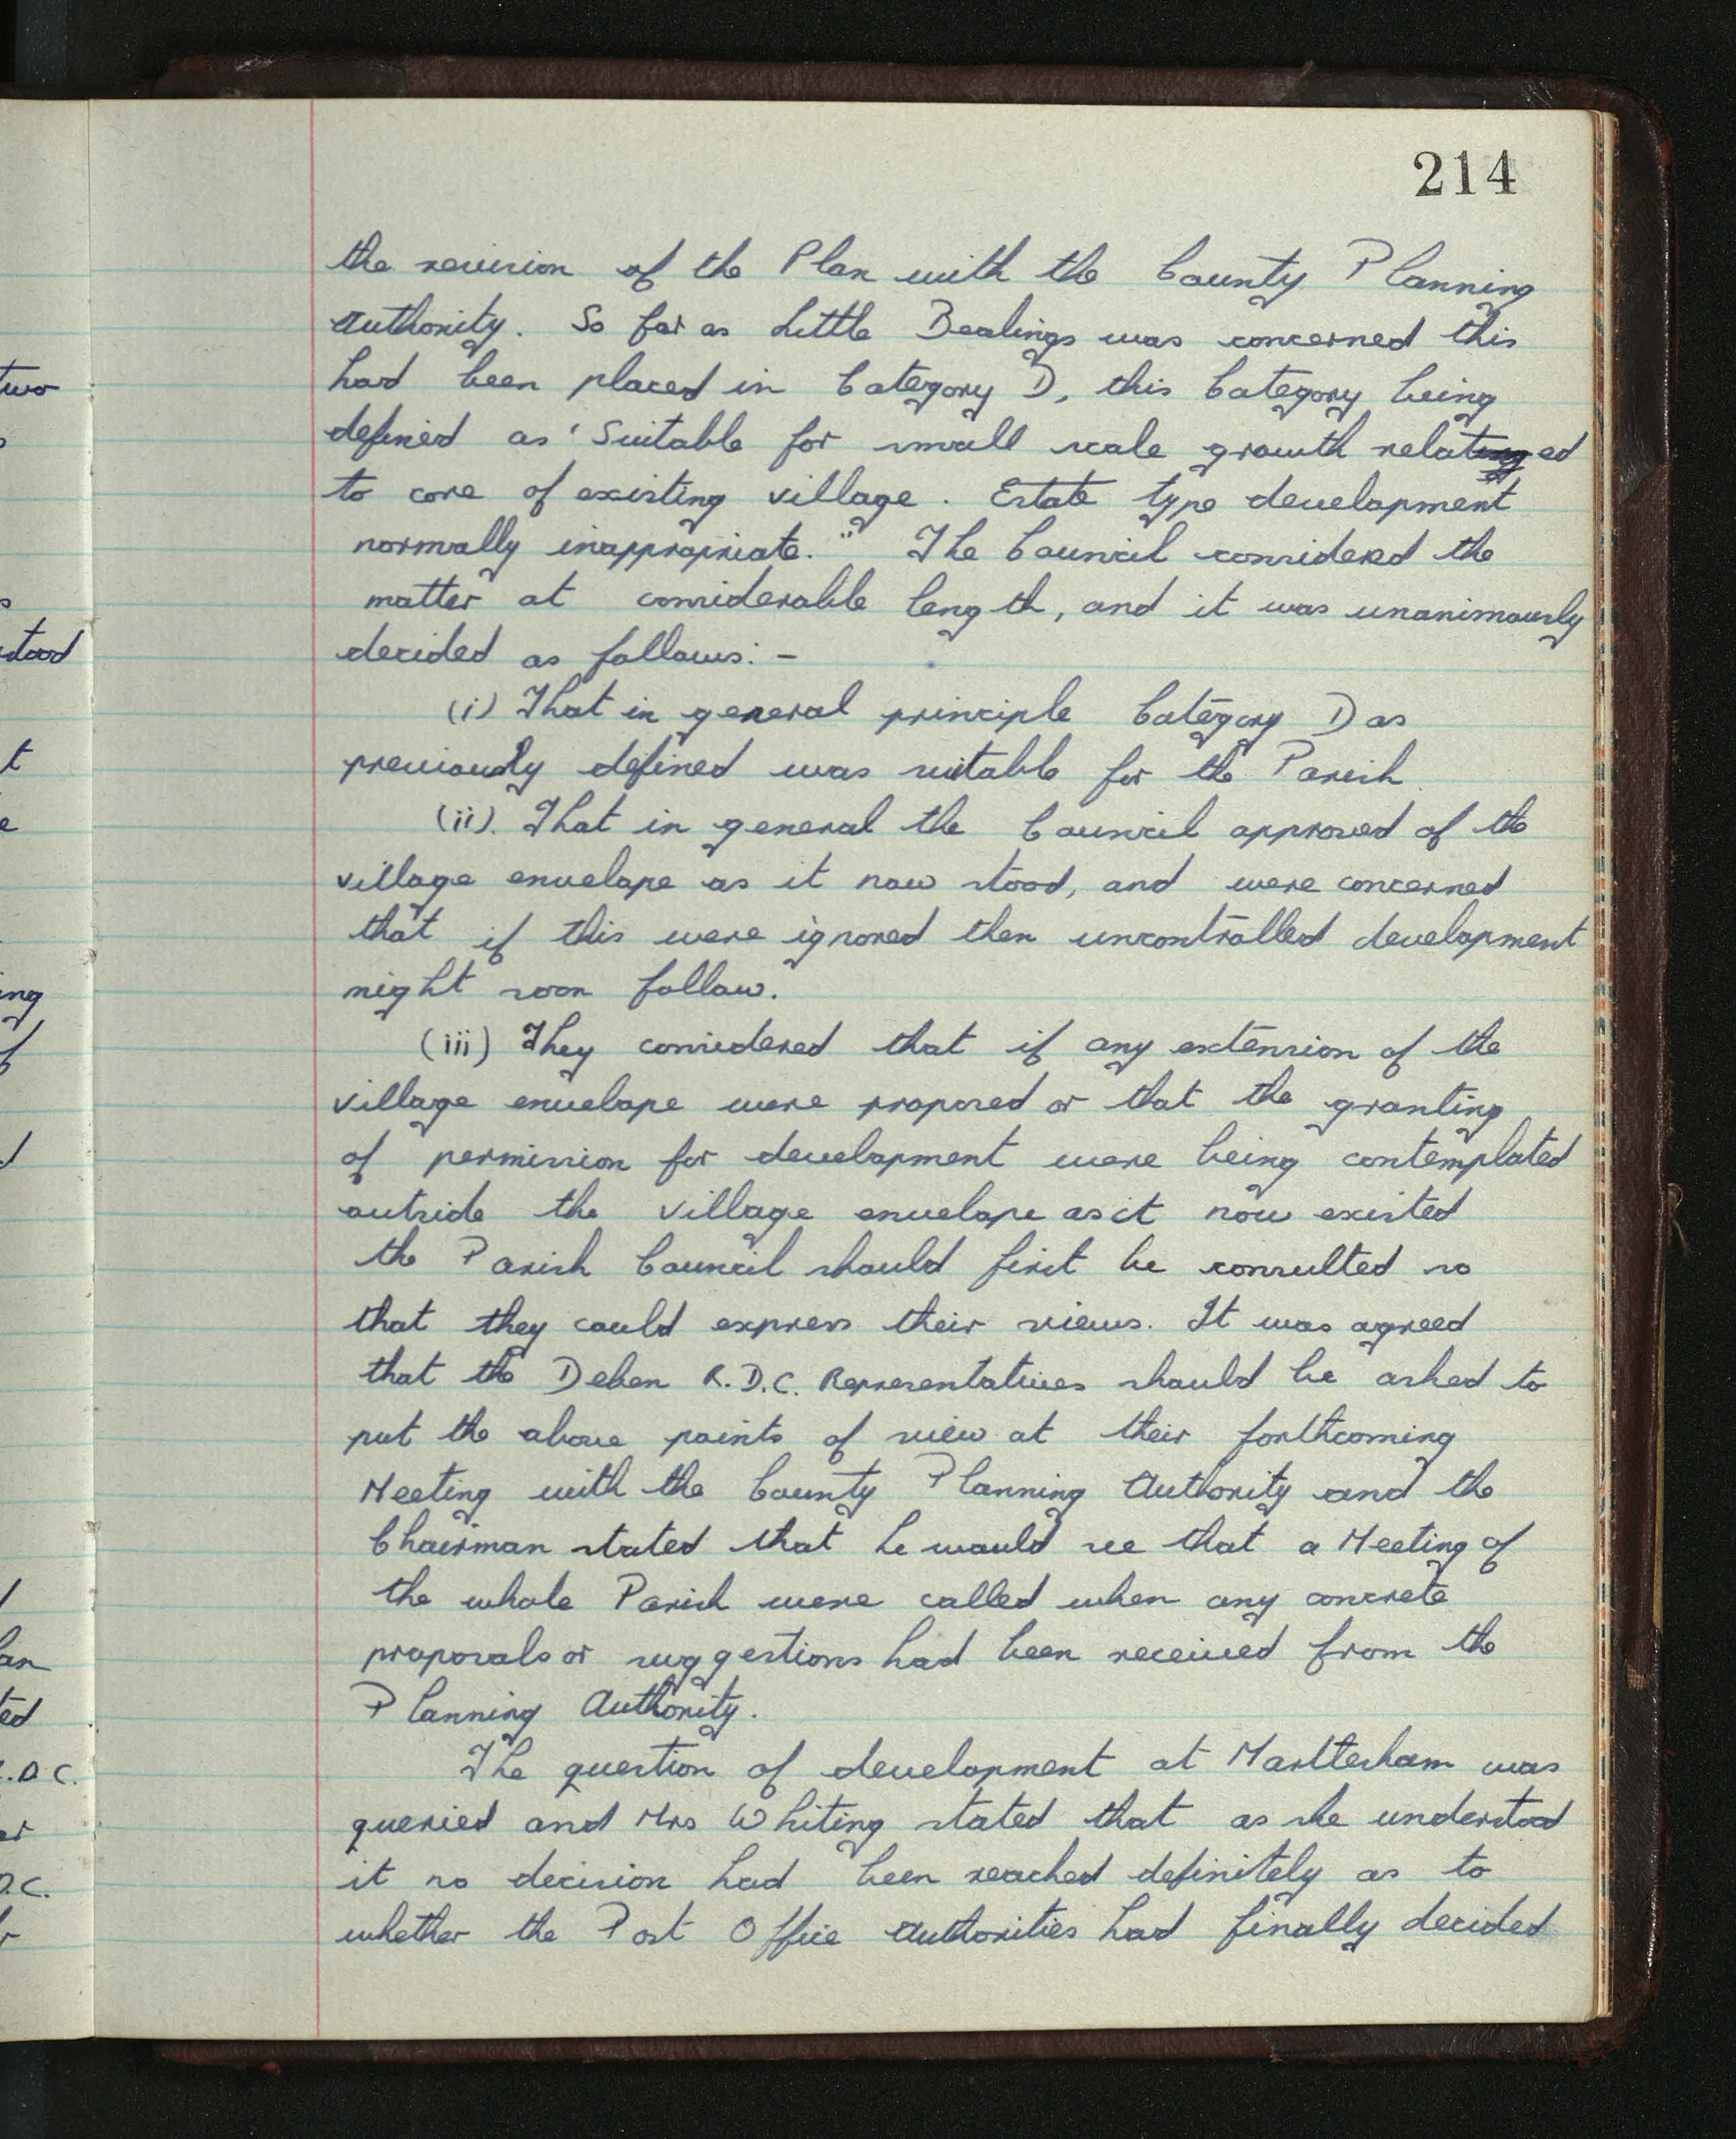 214
the revision of the Plan with the County Planning
Authority. So far as Little Bealings was concerned this
had been placed in Category D, this Category being
defined as 'Suitable for small scale growth related
to core of existing village. Estate type development
normally inappropriate." The Council considered the
matter at considerable length, and it was unanimously
decided as follows: -
(i) That in general principle Category D as
previously defined was suitable for the Parish.
(ii). That in general the Council approved of the
village envelope as it now stood, and were concerned
that if this were ignored then uncontrolled development
might soon follow.
(iii) They considered that if any extension of the
village envelope were proposed or that the granting
of permission for development were being contemplated
outside the village envelope as it now existed
the Parish Council should first be consulted so
that they could express their views. It was agreed
that the Deben R.D.C. Representatives should be asked to
put the above points of view at their forthcoming
Meeting with the County Planning Authority and the
Chairman stated that he would see that a Meeting of
the whole Parish were called when any concrete
proposals or suggestions had been received from the
Planning Authority.
The question of development at Martlesham was
queried and Mrs Whiting stated that as she understood
it no decision had been reached definitely as to
whether the Post Office Authorities had finally decided
two
stood
ing